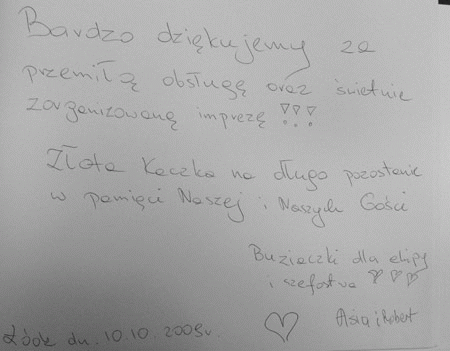 Bardzo dziękujemy za
przemiłą obsługę oraz świetnie
zorganizowaną imprezę !!!
Złota Kaczka na długo pozostanie
w pamięci Naszej i Naszych Gości
Buziaczki dla ekipy
i szefostwa
Asia i Robert
Łódź dn. 10.10.2009r.